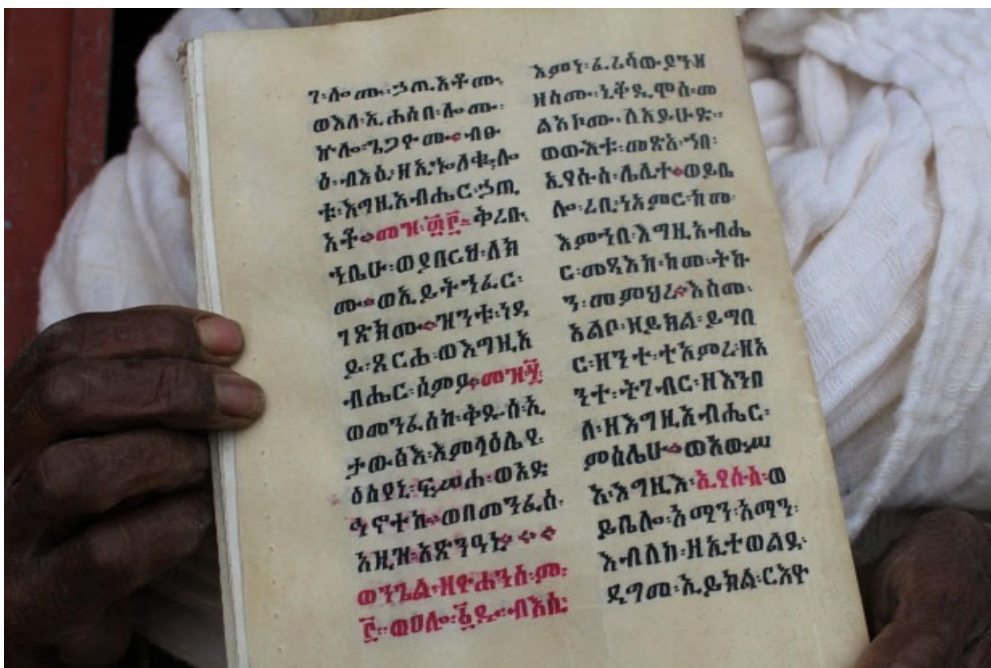 ገ፡ሎሙ፡ኃጢአቶሙ
ወእለ፡ኢሐሰበ፡ሎሙ፡
ኵሎ፡ጌጋዮሙ፡ብፁ
ዕ፡ብእሲ፡ዘኢኈለቁ፡ሎ
ቱ፡እግዚአብሔር፡ኃጢ
አቶ፡መዝ፡፴፫፡ቅረቡ፡
ኀቤሁ፡ወያበርህ፡ለክ
ሙ፡ወኢይትኀፈር፡
ገጽክሙ፡ዝንቱ፡ነዳ
ይ፡ጸርሐ፡ወእግዚአ
ብሔር፡ሰምዖ፡መዝ፶
ወመንፈሰከ፡ቅዱሰ፡ኢ
ታውፅእ፡እምላዕሌየ፡
ዕስየኒ፡ፍሥሐ፡ወአድ
ኅኖተከ፡ወበመንፈስ፡
አዚዝ፡አጽንዓኒ፡
ወንጌል፡ዘዮሐንስ፡ም፡
፫፡ወሀሎ፡፩ዱ፡ብእሲ፡
እምነ፡ፈሪሳውያን፡ዘ
ዘስሙ፡ኒቆዲሞስ፡መ
ልአኮሙ፡ለአይሁድ።
ወውእቱ፡መጽአ፡ኀበ፡
ኢየሱስ፡ሌሊተ፡ወይቤ
ሎ፡ረቢ፡ነአምር፡ከመ፡
እምኀበ፡እግዚአብሔ
ር፡መጻእከ፡ከመ፡ትኩ
ን፡መምህረ፡እስመ፡
አልቦ፡ዘይክል፡ይግበ
ር፡ዘንተ፡ተአምረ፡ዘአ
ንተ፡ትገብር፡ዘእንበ
ለ፡ዘእግዚአብሔር፡
ምስሌሁ፡ወአውሥ
አ፡እግዚእ፡ኢየሱስ፡ወ
ይቤሎ፡አማን፡አማን፡
እብለከ፡ዘኢተወልደ፡
ዳግመ፡ኢይክል፡ርእዮ